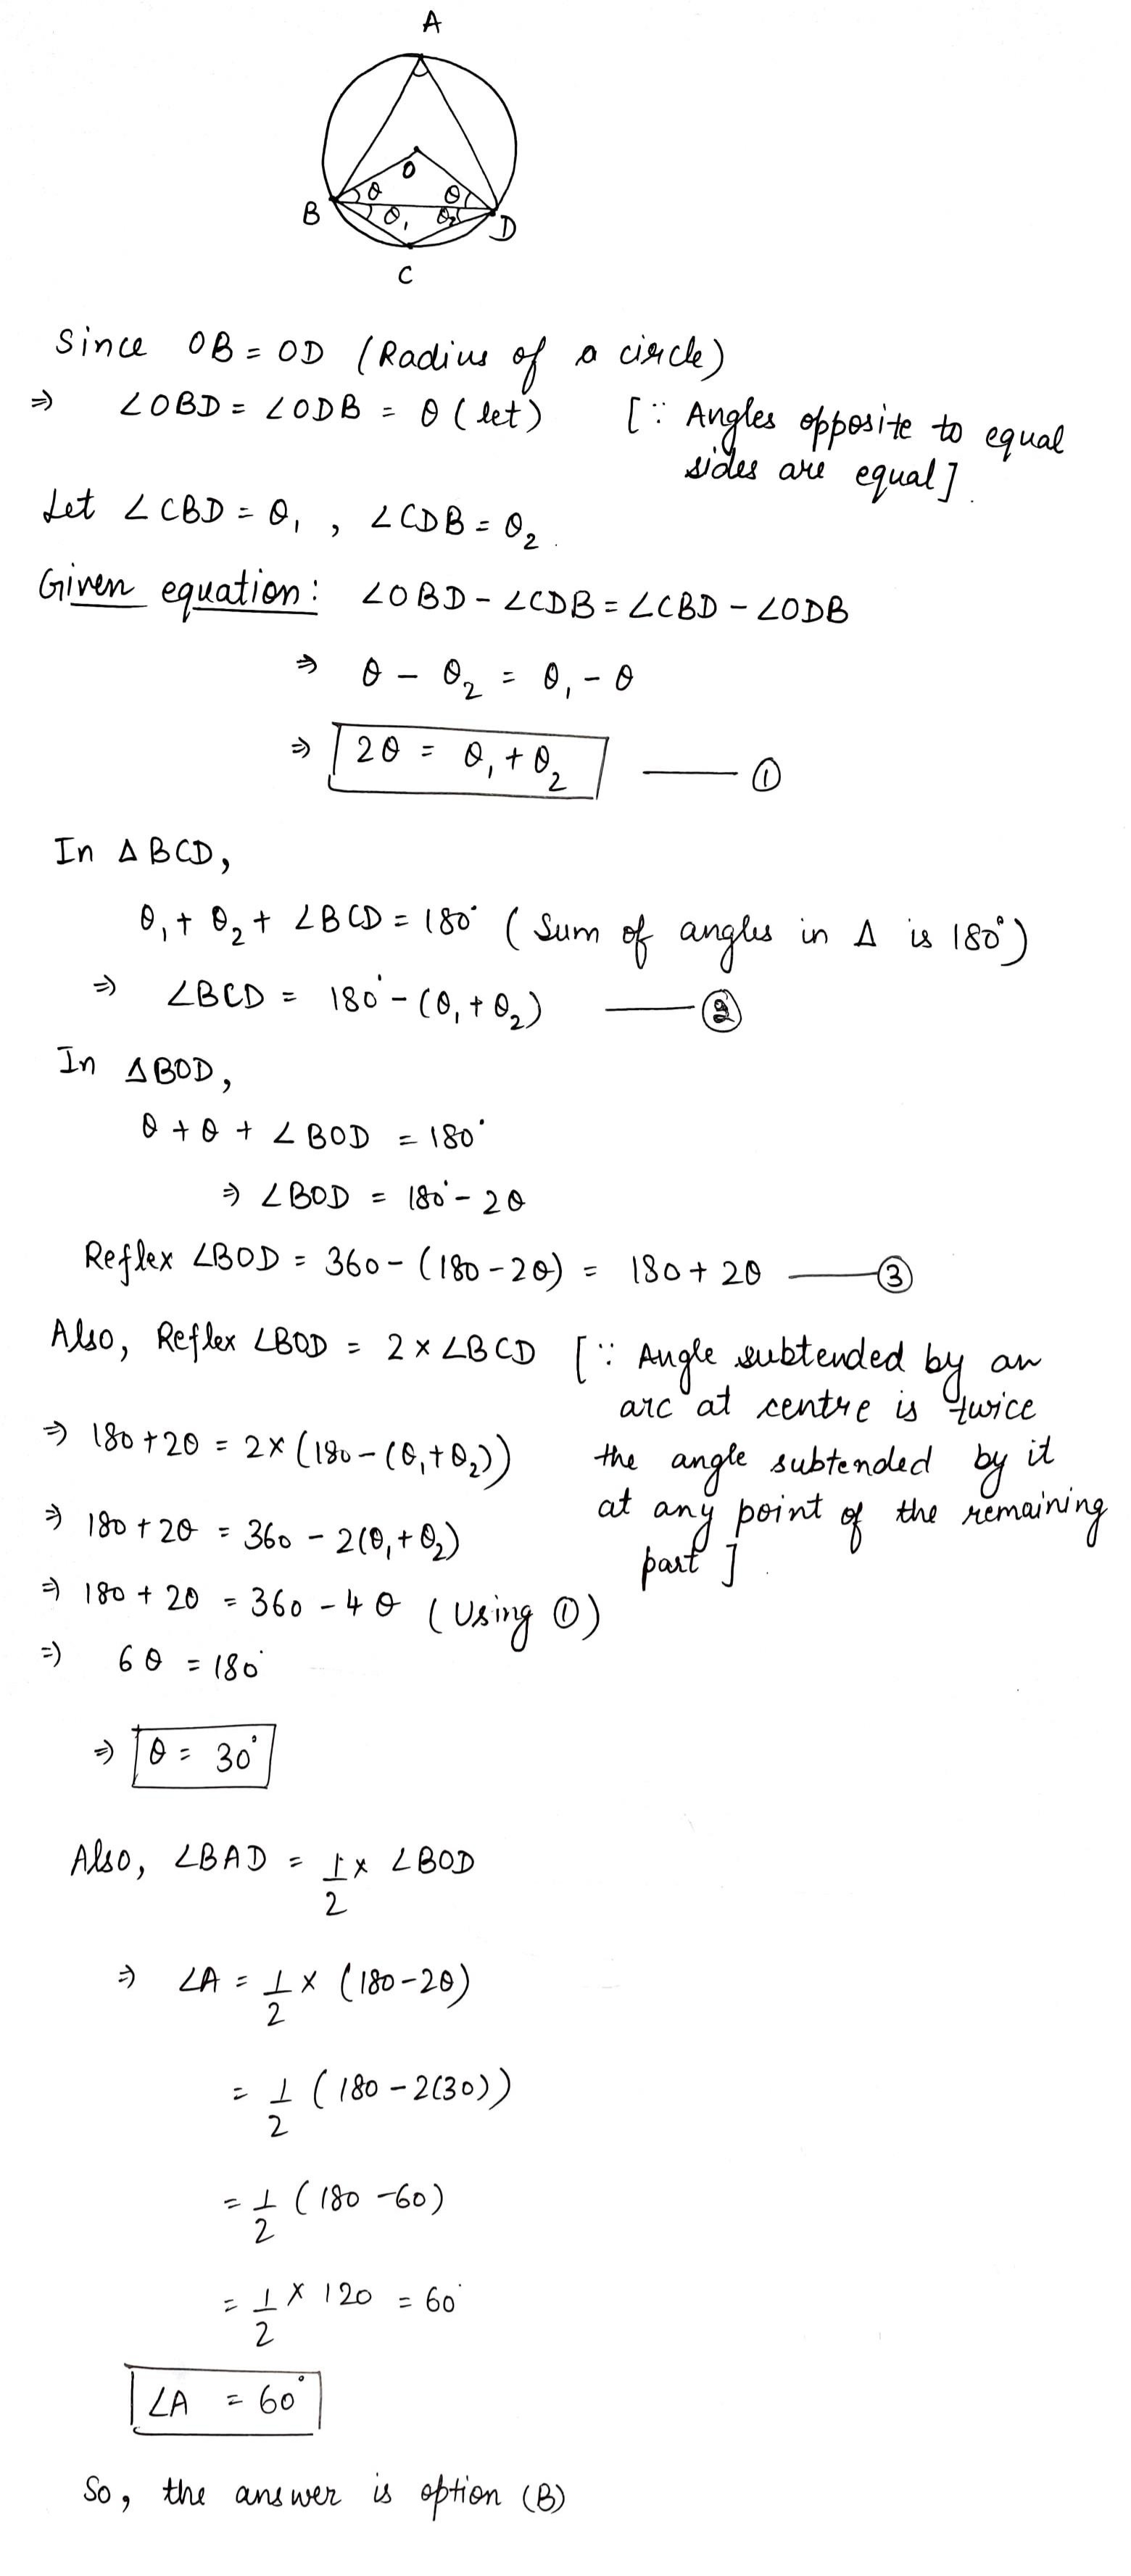 A
O
θ θ
B θ₁ θ₂ D
C
Since OB = OD (Radius of a circle)
⇒ ∠OBD = ∠ODB = θ (let) [∵ Angles opposite to equal
sides are equal].
Let ∠CBD = θ₁ , ∠CDB = θ₂.
Given equation: ∠OBD - ∠CDB = ∠CBD - ∠ODB
⇒ θ - θ₂ = θ₁ - θ
⇒ 2θ = θ₁ + θ₂ —— ①
In Δ BCD,
θ₁ + θ₂ + ∠BCD = 180° (Sum of angles in Δ is 180°)
⇒ ∠BCD = 180° - (θ₁ + θ₂) —— ②
In ΔBOD,
θ + θ + ∠BOD = 180°
⇒ ∠BOD = 180° - 2θ
Reflex ∠BOD = 360 - (180 - 2θ) = 180 + 2θ —— ③
Also, Reflex ∠BOD = 2 × ∠BCD [∵ Angle subtended by an
arc at centre is twice
⇒ 180 + 2θ = 2×(180 - (θ₁ + θ₂)) the angle subtended by it
⇒ 180 + 2θ = 360 - 2(θ₁ + θ₂) at any point of the remaining
part].
⇒ 180 + 2θ = 360 - 4θ (Using ①)
⇒ 6θ = 180°
⇒ θ = 30°
Also, ∠BAD = 1/2 × ∠BOD
⇒ ∠A = 1/2 × (180 - 2θ)
= 1/2 (180 - 2(30))
= 1/2 (180 - 60)
= 1/2 × 120 = 60°
∠A = 60°
So, the answer is option (B)